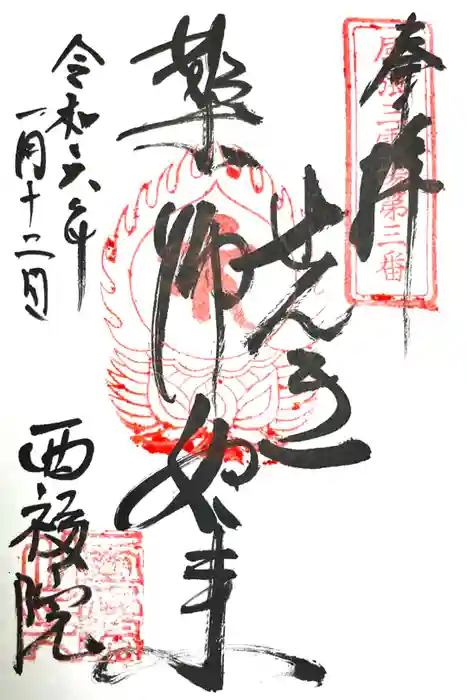 奉拝
せんき
薬師如来
令和六年
一月十二日
西福院
第三番